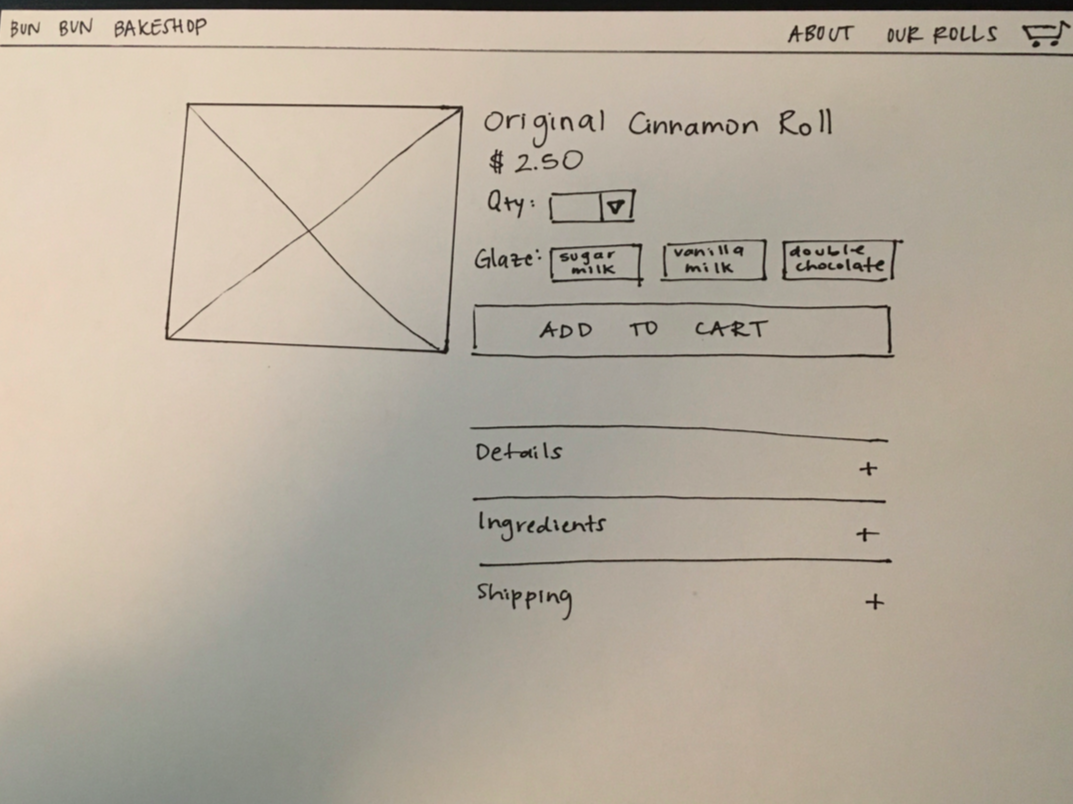 BUN BUN BAKESHOP
ABOUT OUR ROLLS
Original Cinnamon Roll
$ 2.50
Qty:
Glaze: sugar milk vanilla milk double chocolate
ADD TO CART
Details +
Ingredients +
Shipping +